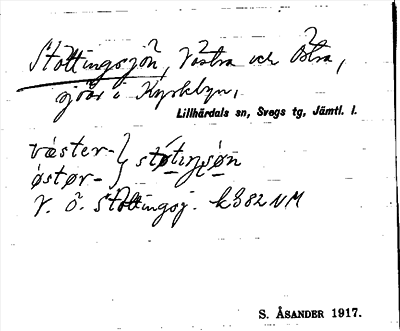 Stöttingsjön, Västra och Östra,
sjöar i Kyrkbyn,
Lillhärdals sn, Svegs tg, Jämtl. l.
väster-} 
østør-} støtıŋsøn
V. Ö. Stöttingsj. k382 NM
S. ÅSANDER 1917.